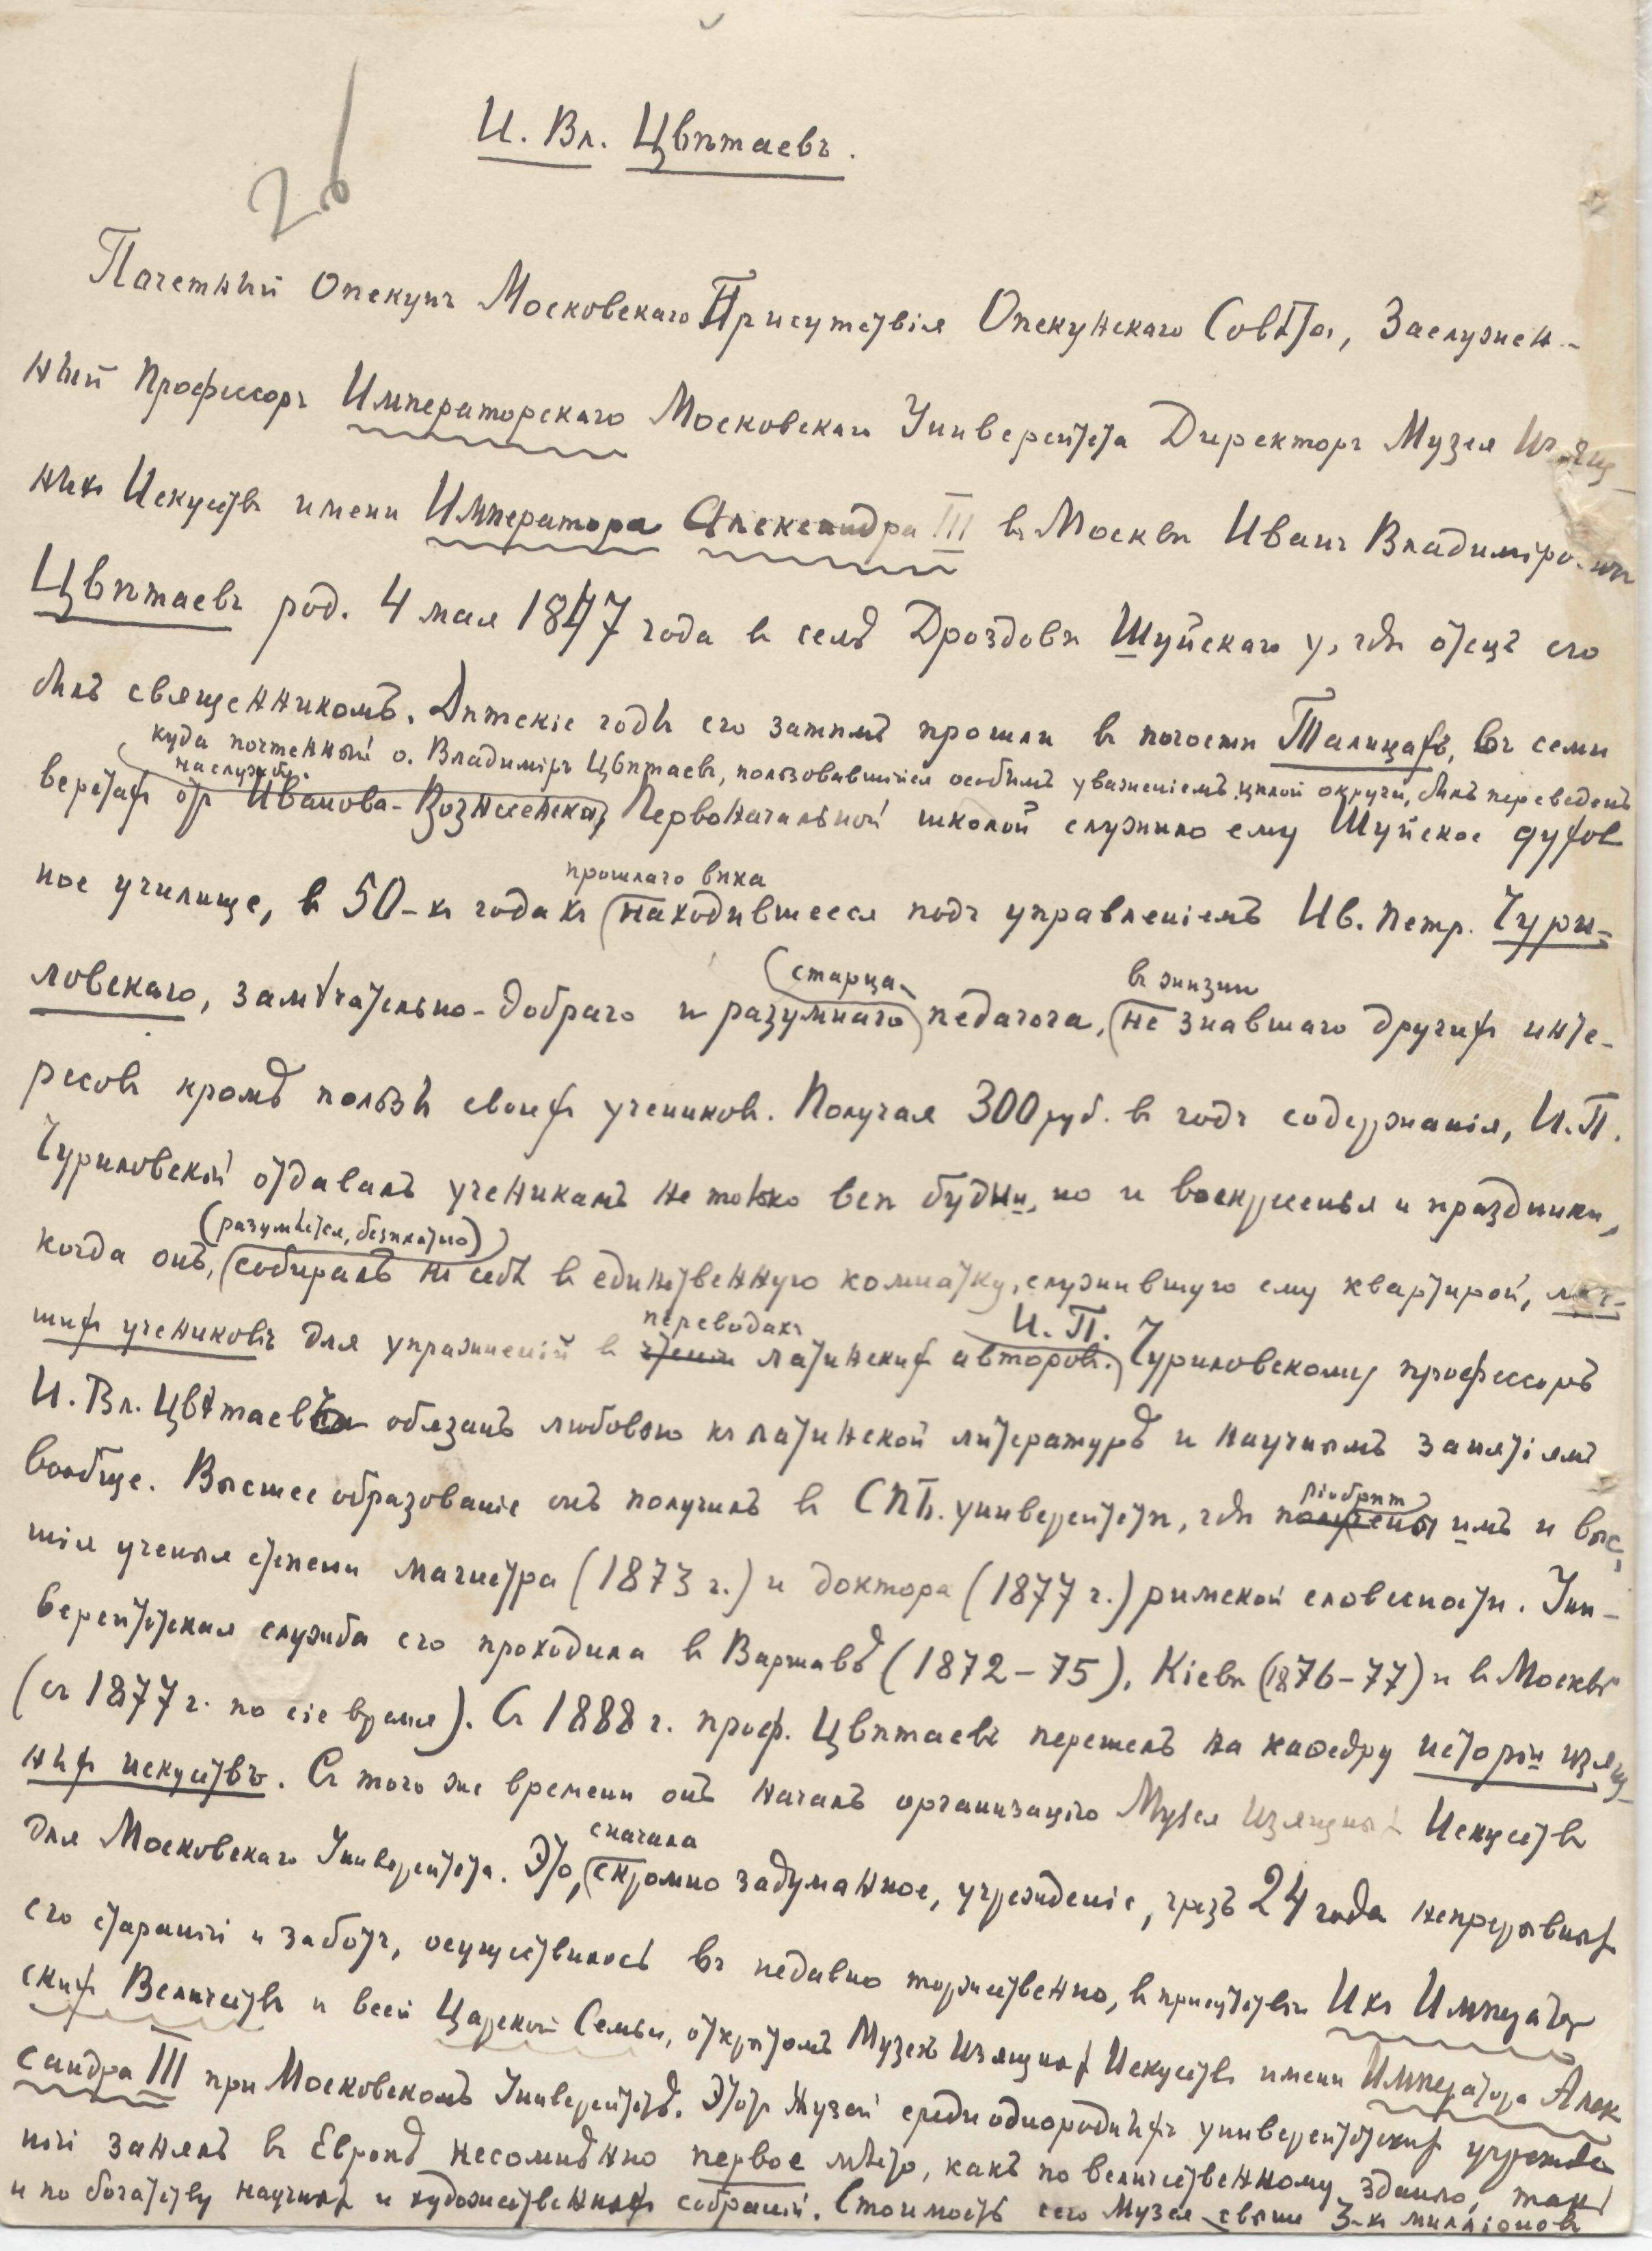 26
И. Вл. Цвѣтаевъ.
Почетный Опекунъ Московскаго Присутствія Опекунскаго Совѣта, Заслужен-
ный Профессоръ Императорскаго Московскаго Университета Директоръ Музея Изящ-
ныхъ Искусствъ имени Императора Александра III въ Москвѣ Иванъ Владиміровичъ
Цвѣтаевъ род. 4 мая 1847 года въ селѣ Дроздовѣ Шуйскаго у, гдѣ отецъ его
былъ священникомъ. Дѣтскіе годы его затѣмъ прошли въ погостѣ Талицахъ, въ семи
куда почтенный о. Владиміръ Цвѣтаевъ, пользовавшійся особымъ уваженіемъ цѣлой округи, былъ переведенъ
на службу.
верстахъ отъ Иванова-Вознесенска, Первоначальной школой служило ему Шуйское духов
прошлаго вѣка
ное училище, въ 50-хъ годахъ находившееся подъ управленіемъ Ив. Петр. Чури-
старца- въ жизни
ловскаго, замѣчательно-добраго и разумнаго педагога, не знавшаго другихъ инте-
ресовъ кромѣ пользы своихъ учениковъ. Получая 300 руб. въ годъ содержанія, И. П.
Чуриловскій отдавалъ ученикамъ не только всѣ будни, но и воскресенья и праздники,
(разумѣется, безплатно)
когда онъ, собиралъ къ себѣ въ единственную комнатку, служившую ему квартирой, луч-
переводахъ И. П.
шихъ учениковъ для упражненій въ чтеніи латинскихъ авторовъ. Чуриловскому профессоръ
И. Вл. Цвѣтаевъ обязанъ любовью къ латинской литературѣ и научнымъ занятіямъ
вообще. Высшее образованіе онъ получилъ въ СПб. университетѣ, гдѣ получены имъ и выс-
шія ученыя степени магистра (1873 г.) и доктора (1877 г.) римской словесности. Уни-
верситетская служба его проходила въ Варшавѣ (1872-75), Кіевѣ (1876-77) и въ Москвѣ
(съ 1877 г. по сіе время). Съ 1888 г. проф. Цвѣтаевъ перешелъ на каѳедру исторіи изящ-
ныхъ искусствъ. Съ того же времени онъ началъ организацію Музея Изящныхъ Искусствъ
сначала
для Московскаго Университета. Это, скромно задуманное, учрежденіе, чрезъ 24 года непрерывныхъ
его стараній и заботъ, осуществилось въ недавно торжественно, въ присутствіи Ихъ Император
скихъ Величествъ и всей Царской Семьи, открытомъ Музеѣ Изящныхъ Искусствъ имени Императора Алек
сандра III при Московскомъ Университетѣ. Этотъ Музей среди однородныхъ университетскихъ учрежде
ній занялъ въ Европѣ несомнѣнно первое мѣсто, какъ по величественному зданію, такъ
и по богатству научныхъ и художественныхъ собраній. Стоимость сего Музея свыше 3-хъ милліоновъ